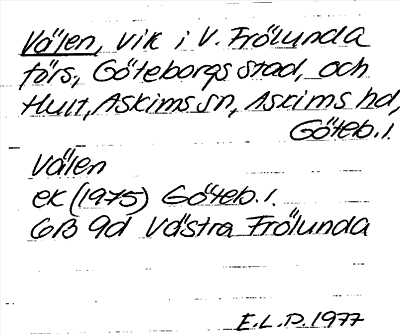 Välen, vik i V. Frölunda
förs, Göteborgs stad, och
Hult, Askims sn, Askims hd,
Göteb. l.
Välen
ek (1975) Göteb. l.
6B 9d Västra Frölunda
E.L.P. 1977